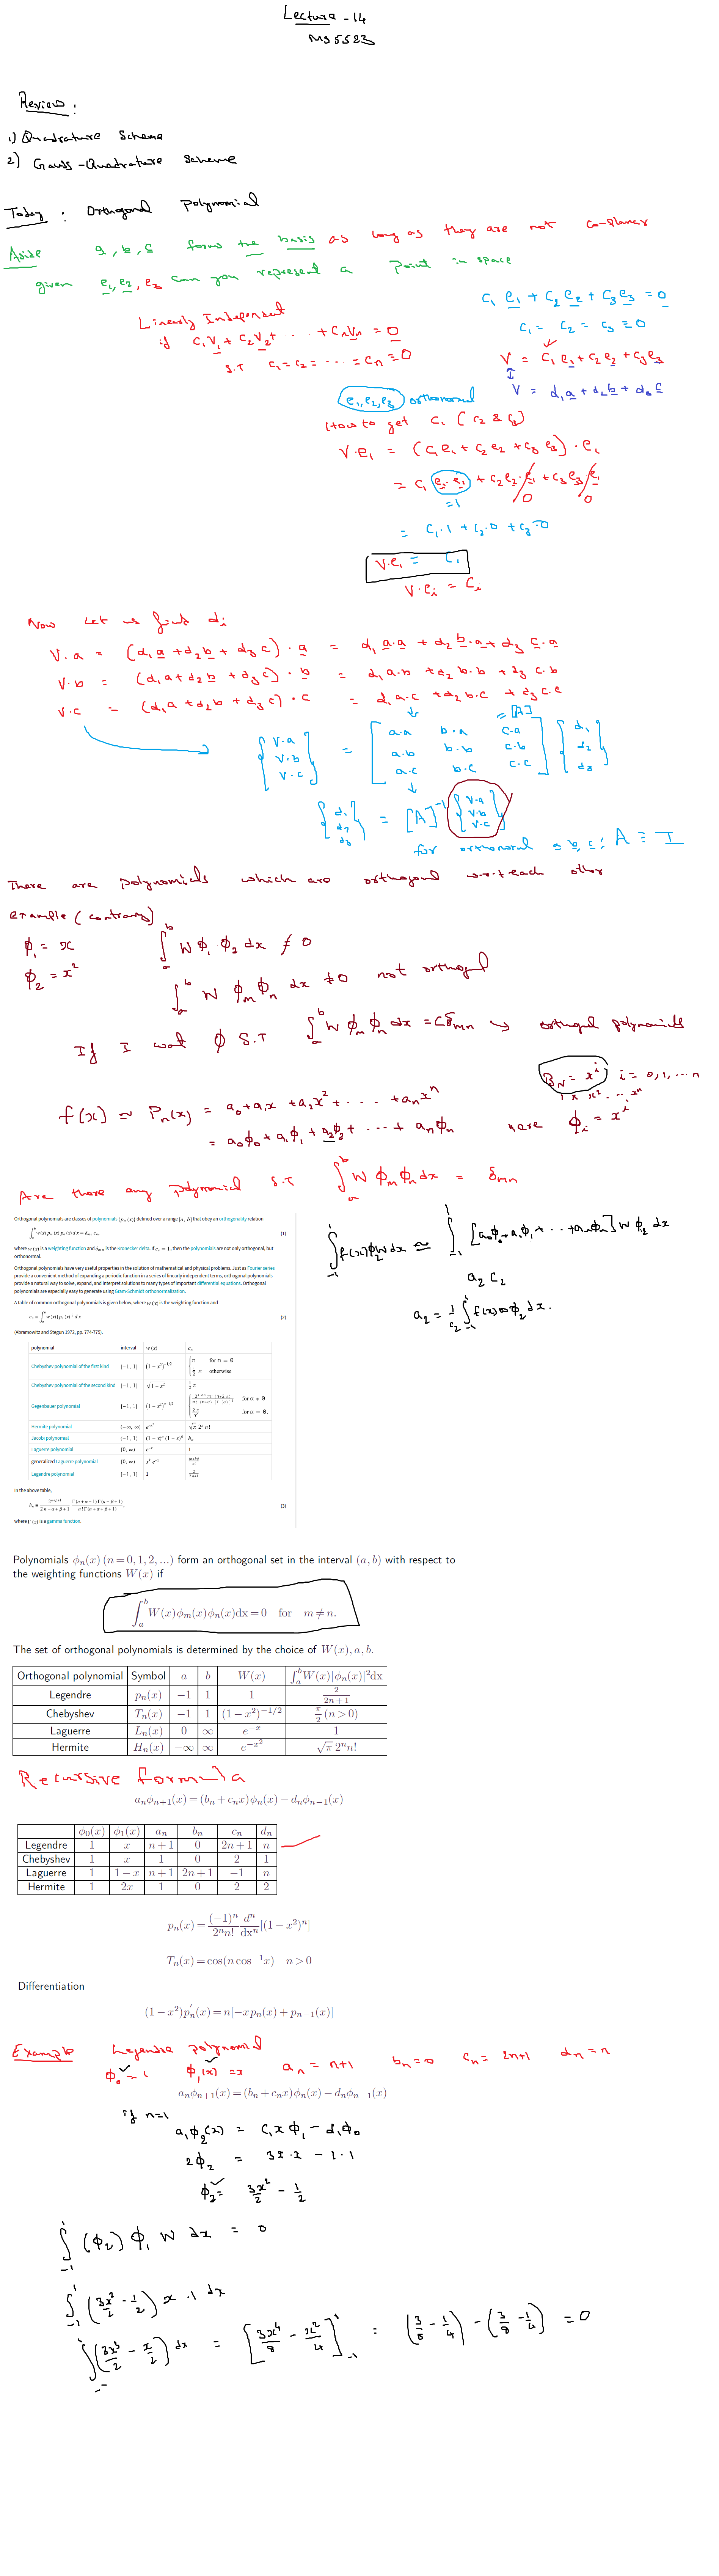 Lecture - 14
MS5523
Review:
1) Quadrature Scheme
2) Gauss-Quadrature Scheme
Today: Orthogonal Polynomial
Aside a, b, c forms the basis as long as they are not co-planar
given e₁, e₂, e₃ can you represent a point in space
Linearly Independent
if c₁V₁ + c₂V₂ + ... + cₙVₙ = 0
s.t c₁ = c₂ = ... = cₙ = 0
c₁ e₁ + c₂ e₂ + c₃ e₃ = 0
c₁ = c₂ = c₃ = 0
V = c₁e₁ + c₂e₂ + c₃e₃
V = d₁a + d₂b + d₃c
e₁, e₂, e₃ orthonormal
How to get c₁ (c₂ & c₃)
V·e₁ = (c₁e₁ + c₂e₂ + c₃e₃)·e₁
= c₁ e₁·e₁ + c₂e₂·e₁ + c₃e₃·e₁
=1 0 0
= c₁·1 + c₂·0 + c₃·0
V·e₁ = c₁
V·eᵢ = cᵢ
Now let us find dᵢ
V·a = (d₁a + d₂b + d₃c)·a = d₁a·a + d₂b·a + d₃c·a
V·b = (d₁a + d₂b + d₃c)·b = d₁a·b + d₂b·b + d₃c·b
V·c = (d₁a + d₂b + d₃c)·c = d₁a·c + d₂b·c + d₃c·c
= [A]
{V·a V·b V·c} = [a·a b·a c·a
a·b b·b c·b
a·c b·c c·c] {d₁ d₂ d₃}
{d₁ d₂ d₃} = [A]⁻¹ {V·a V·b V·c}
for orthonormal a, b, c; A = I
There are polynomials which are orthogonal w.r.t each other
example (contrary)
φ₁ = x ∫ₐᵇ W φ₁ φ₂ dx ≠ 0
φ₂ = x²
∫ₐᵇ W φₘ φₙ dx ≠ 0 not orthogonal
If I want φ s.T ∫ₐᵇ W φₘ φₙ dx = Cδₘₙ → orthogonal polynomials
B_N = xⁱ i = 0, 1, ... n
1 x x² ... xⁿ
f(x) ≃ Pₙ(x) = a₀ + a₁x + a₂x² + ... + aₙxⁿ
= a₀φ₀ + a₁φ₁ + a₂φ₂ + ... + aₙφₙ here φᵢ = xⁱ
Are there any polynomial s.T ∫ₐᵇ W φₘ φₙ dx = δₘₙ
Orthogonal polynomials are classes of polynomials {pₙ(x)} defined over a range [a, b] that obey an orthogonality relation
∫ₐᵇ w(x) pₘ(x) pₙ(x) dx = δₘₙ cₙ, (1)
where w(x) is a weighting function and δₘₙ is the Kronecker delta. If cₙ = 1, then the polynomials are not only orthogonal, but
orthonormal.
Orthogonal polynomials have very useful properties in the solution of mathematical and physical problems. Just as Fourier series
provide a convenient method of expanding a periodic function in a series of linearly independent terms, orthogonal polynomials
provide a natural way to solve, expand, and interpret solutions to many types of important differential equations. Orthogonal
polynomials are especially easy to generate using Gram-Schmidt orthonormalization.
A table of common orthogonal polynomials is given below, where w(x) is the weighting function and
cₙ ≡ ∫ₐᵇ w(x)[pₙ(x)]² dx (2)
(Abramowitz and Stegun 1972, pp. 774-775).
polynomial interval w(x) cₙ
Chebyshev polynomial of the first kind [-1, 1] (1-x²)^(-1/2) {π for n = 0; ½π otherwise
Chebyshev polynomial of the second kind [-1, 1] √(1-x²) ½π
Gegenbauer polynomial [-1, 1] (1-x²)^(α-1/2) for α ≠ 0 for α = 0.
Hermite polynomial (-∞, ∞) e^(-x²) √π 2ⁿ n!
Jacobi polynomial (-1, 1) (1-x)^α (1+x)^β hₙ
Laguerre polynomial [0, ∞) e^(-x) 1
generalized Laguerre polynomial [0, ∞) x^k e^(-x) (n+k)!/n!
Legendre polynomial [-1, 1] 1 2/(2n+1)
In the above table,
hₙ ≡ 2^(α+β+1)/(2n+α+β+1) Γ(n+α+1)Γ(n+β+1)/(n! Γ(n+α+β+1)), (3)
where Γ(z) is a gamma function.
∫₋₁¹ f(x)φ₂W dx ≃ ∫₋₁¹ [a₀φ₀ + a₁φ₁ + ... + aₙφₙ] W φ₂ dx
a₂ c₂
a₂ = 1/c₂ ∫₋₁¹ f(x) ω φ₂ dx.
Polynomials φₙ(x) (n = 0, 1, 2, ...) form an orthogonal set in the interval (a, b) with respect to
the weighting functions W(x) if
∫ₐᵇ W(x)φₘ(x)φₙ(x)dx = 0 for m ≠ n.
The set of orthogonal polynomials is determined by the choice of W(x), a, b.
Orthogonal polynomial Symbol a b W(x) ∫ₐᵇ W(x)|φₙ(x)|²dx
Legendre pₙ(x) −1 1 1 2/(2n+1)
Chebyshev Tₙ(x) −1 1 (1−x²)^(−1/2) π/2 (n>0)
Laguerre Lₙ(x) 0 ∞ e^(−x) 1
Hermite Hₙ(x) −∞ ∞ e^(−x²) √π 2ⁿn!
Recursive formula
aₙφₙ₊₁(x) = (bₙ + cₙx)φₙ(x) − dₙφₙ₋₁(x)
φ₀(x) φ₁(x) aₙ bₙ cₙ dₙ
Legendre 1 x n+1 0 2n+1 n
Chebyshev 1 x 1 0 2 1
Laguerre 1 1−x n+1 2n+1 −1 n
Hermite 1 2x 1 0 2 2
pₙ(x) = (−1)ⁿ/(2ⁿn!) dⁿ/dxⁿ [(1−x²)ⁿ]
Tₙ(x) = cos(n cos⁻¹x) n > 0
Differentiation
(1−x²)p′ₙ(x) = n[−xpₙ(x) + pₙ₋₁(x)]
Example Legendre polynomial
φ₀ = 1 φ₁(x) = x aₙ = n+1 bₙ = 0 cₙ = 2n+1 dₙ = n
aₙφₙ₊₁(x) = (bₙ + cₙx)φₙ(x) − dₙφₙ₋₁(x)
if n=1
a₁φ₂(x) = c₁x φ₁ − d₁φ₀
2φ₂ = 3x·x − 1·1
φ₂ = 3x²/2 − 1/2
∫₋₁¹ (φ₂) φ₁ W dx = 0
∫₋₁¹ (3x²/2 − 1/2) x·1 dx
∫₋₁¹ (3x³/2 − x/2) dx = [3x⁴/8 − x²/4]₋₁¹ = (3/8 − 1/4) − (3/8 − 1/4) = 0